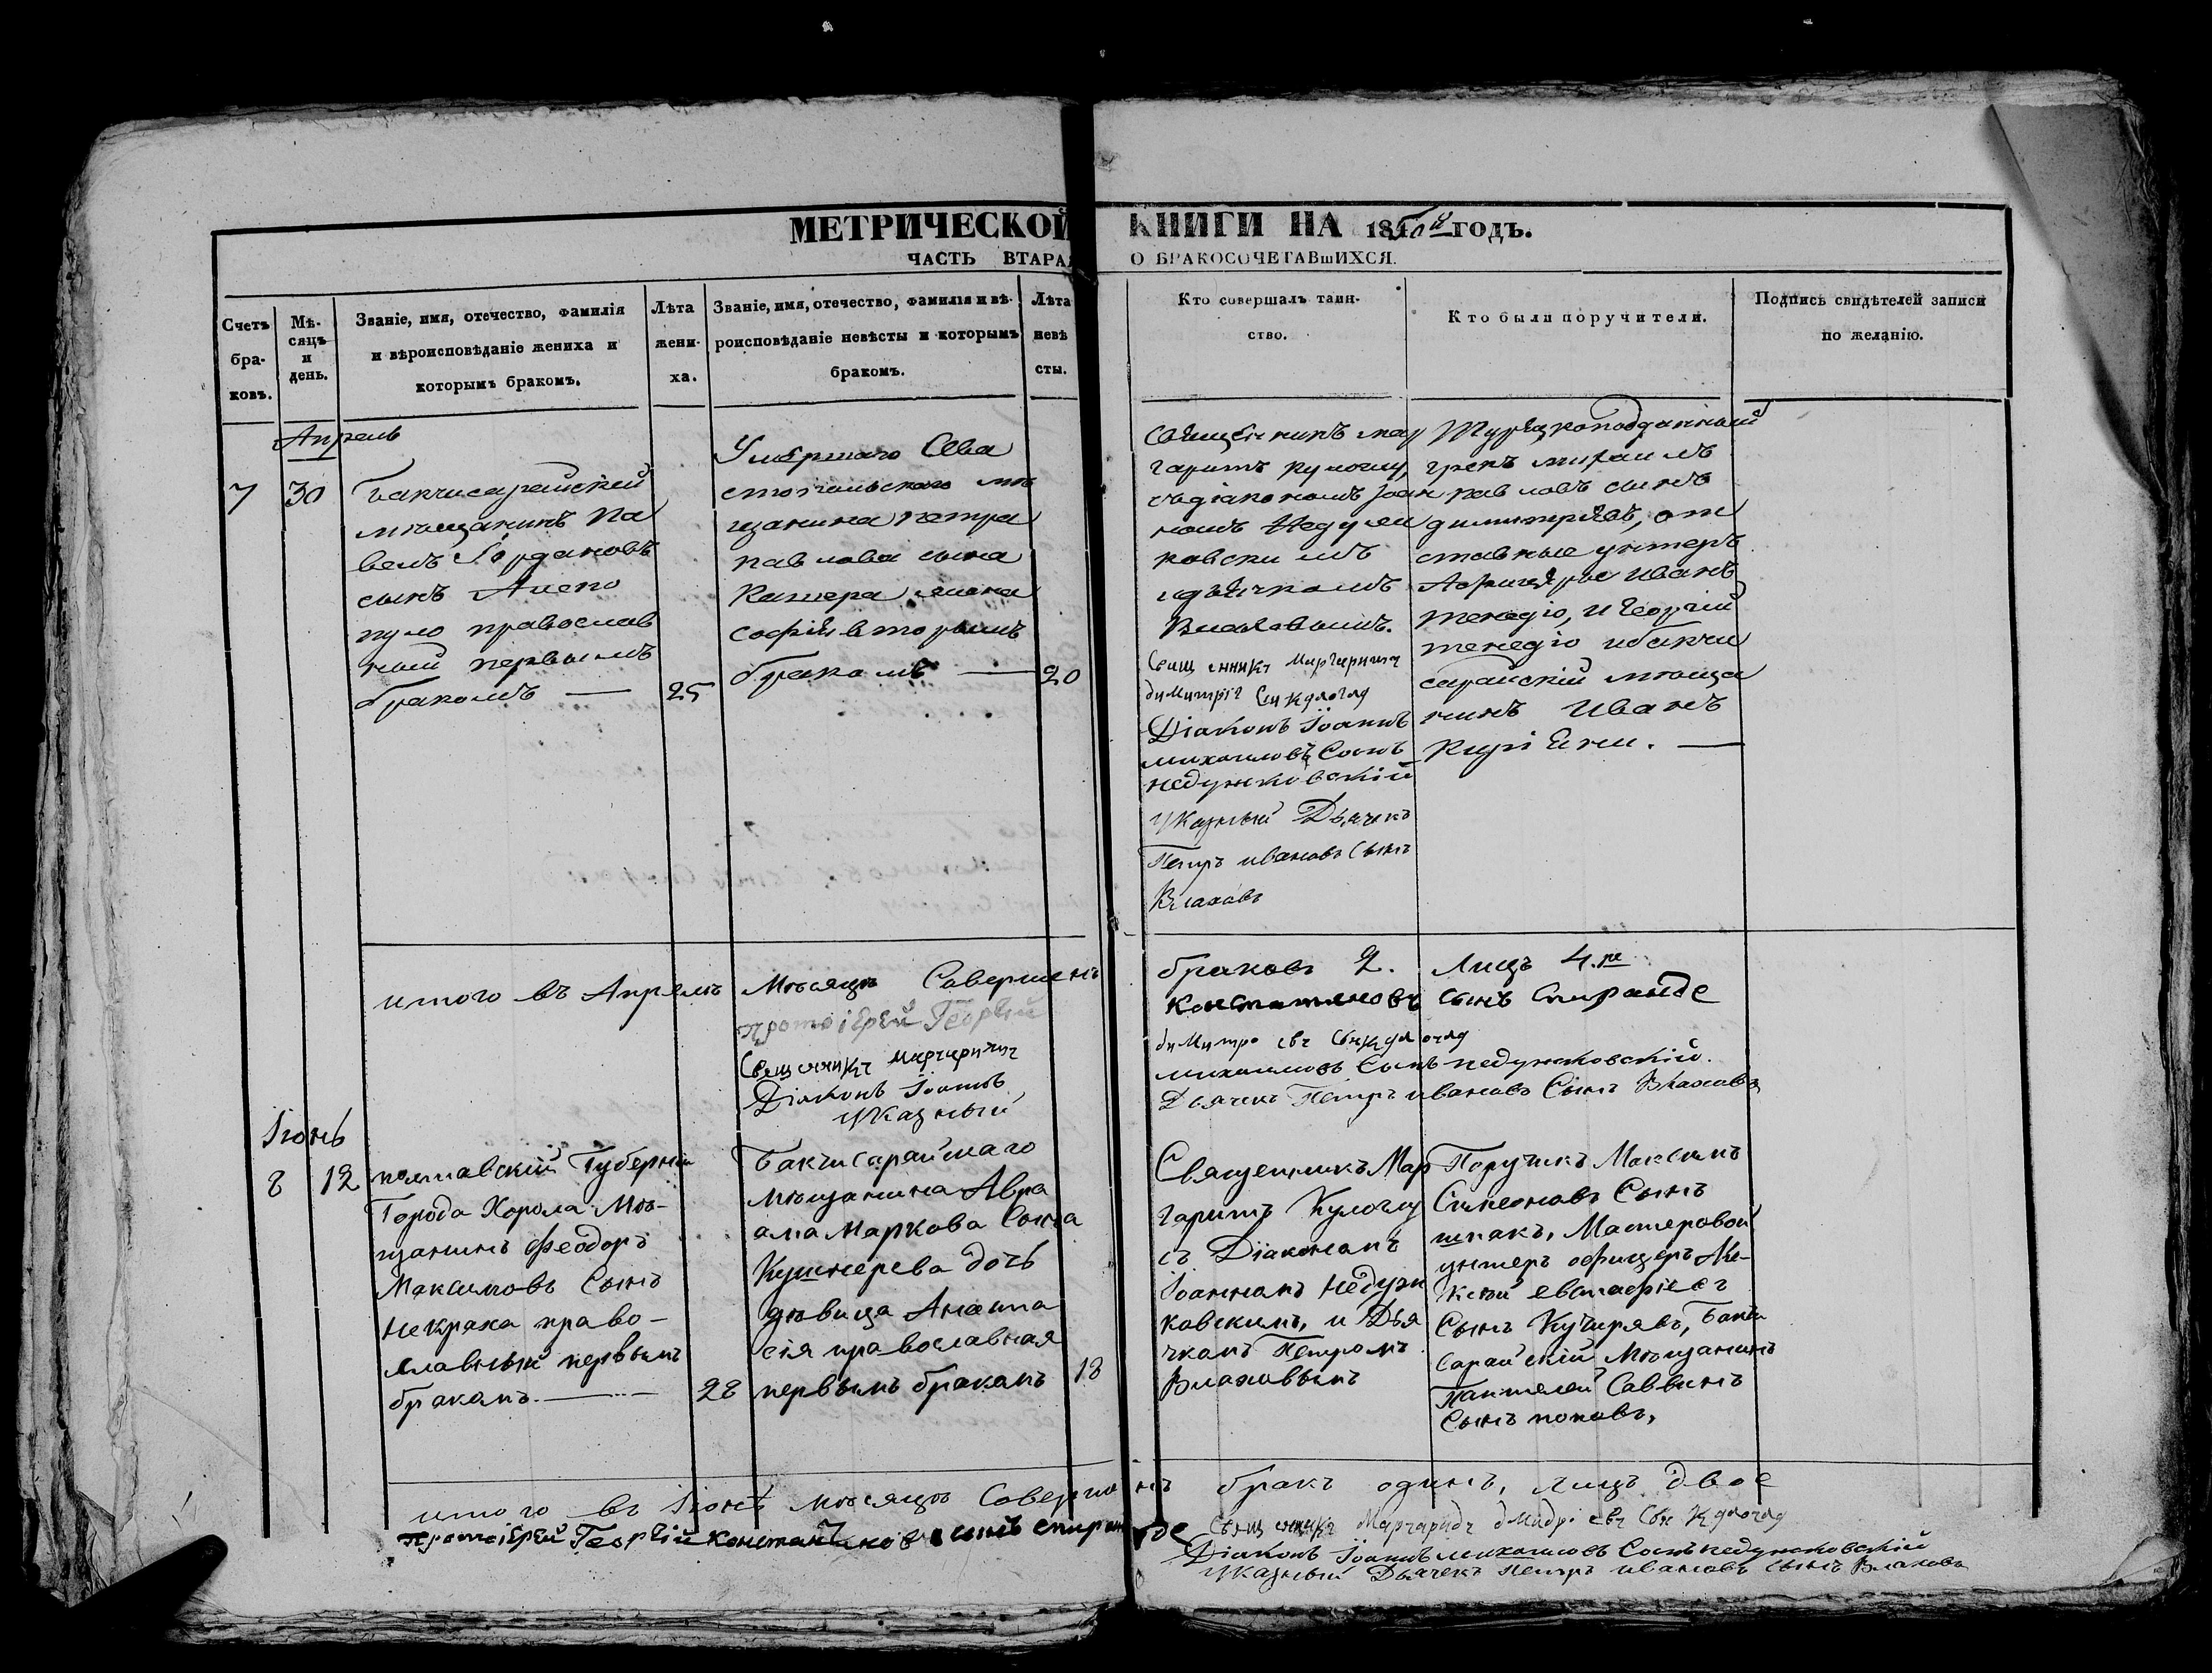 МЕТРИЧЕСКОЙ КНИГИ НА 1850й ГОДЪ.
ЧАСТЬ ВТАРАЯ О БРАКОСОЧЕТАВшИХСЯ.
Счетъ
бра-
ковъ.
Мѣ-
сяцъ
и
день.
Званіе, имя, отечество, фамилія
и вѣроисповѣданіе жениха и
которымъ бракомъ.
Лѣта
жени-
ха.
Званіе, имя, отечество, фамилія и вѣ-
роисповѣданіе невѣсты и которымъ
бракомъ.
Лѣта
невѣ
сты.
Кто совершалъ таин-
ство.
Кто были поручители.
Подпись свидѣтелей записи
по желанію.
Апрель
7
30
Бакчисарейскій
мѣщанинъ Па
велъ Іордановъ
сынъ Алепо
пуло православ
ный первымъ
бракомъ —
25
Умершаго Сева
стопольскаго мѣ
щанина петра
павлова сына
Катера жена
софія вторымъ
бракомъ —
20
Священникъ мар
гаритъ кулоглу,
съ діакономъ Іоан
номъ Недуж
ковскимъ
и дьячкомъ
Влаховымъ.
Священникъ Маргаритъ
димитріе
Діаконъ Іоаннъ
михаиловъ Сынъ
недужковскій
Указный Дьячекъ
Петръ ивановъ Сынъ
Влаховъ
Турецкоподданный
грекъ михаилъ
павловъ сынъ
димитріевъ, от
ставные унтеръ
Афицеры Иванъ
тенедіо, и Георгій
тенедіо и бакчи
сарайскій мѣща
нинъ Иванъ
—
итого въ Апрелѣ Мѣсяцѣ Совершенъ браковъ 2. Лицъ 4.ре
протоіерей Георгій Константиновъ Сынъ Спиранде
Священникъ Маргаритъ
Діаконъ Іоаннъ михаиловъ Сынъ недужковскій.
Указный Дьячекъ Петръ ивановъ Сынъ Влаховъ
Іюнь
8
12
полтавскій Губерніи
Города Хорола Мѣ-
щанинъ Феодоръ
Максимовъ Сынъ
Некраха право-
славный первымъ
бракамъ. —
28
Бакчисарайскаго
Мѣщанина Авра
ама Маркова Сына
Кушнерева дочь
дѣвица Анаста
сія православная
первымъ бракамъ
18
Священникъ Мар
гаритъ Кулоглу
съ Діаконамъ
Іоаннамъ Недуж
ковскимъ, и Дья
чкамъ Петромъ
Влаховымъ
Поручикъ Максимъ
Симеоновъ Сынъ
шпакъ, Мастеровой
унтеръ офицеръ Але-
ксѣй евстафіевъ
Сынъ Кучерявъ, Бакчи
сарайскій Мѣщанинъ
Пантелей Саввинъ
Сынъ поповъ,
итого въ Іюнѣ мѣсяцѣ Совершенъ бракъ одинъ, лицъ двое
протоіерей Георгій Константиновъ сынъ спиранде
Священникъ Маргаридъ
Діаконъ Іоаннъ михаиловъ Сынъ недужковскій
Указный Дьячекъ Петръ ивановъ Сынъ Влаховъ